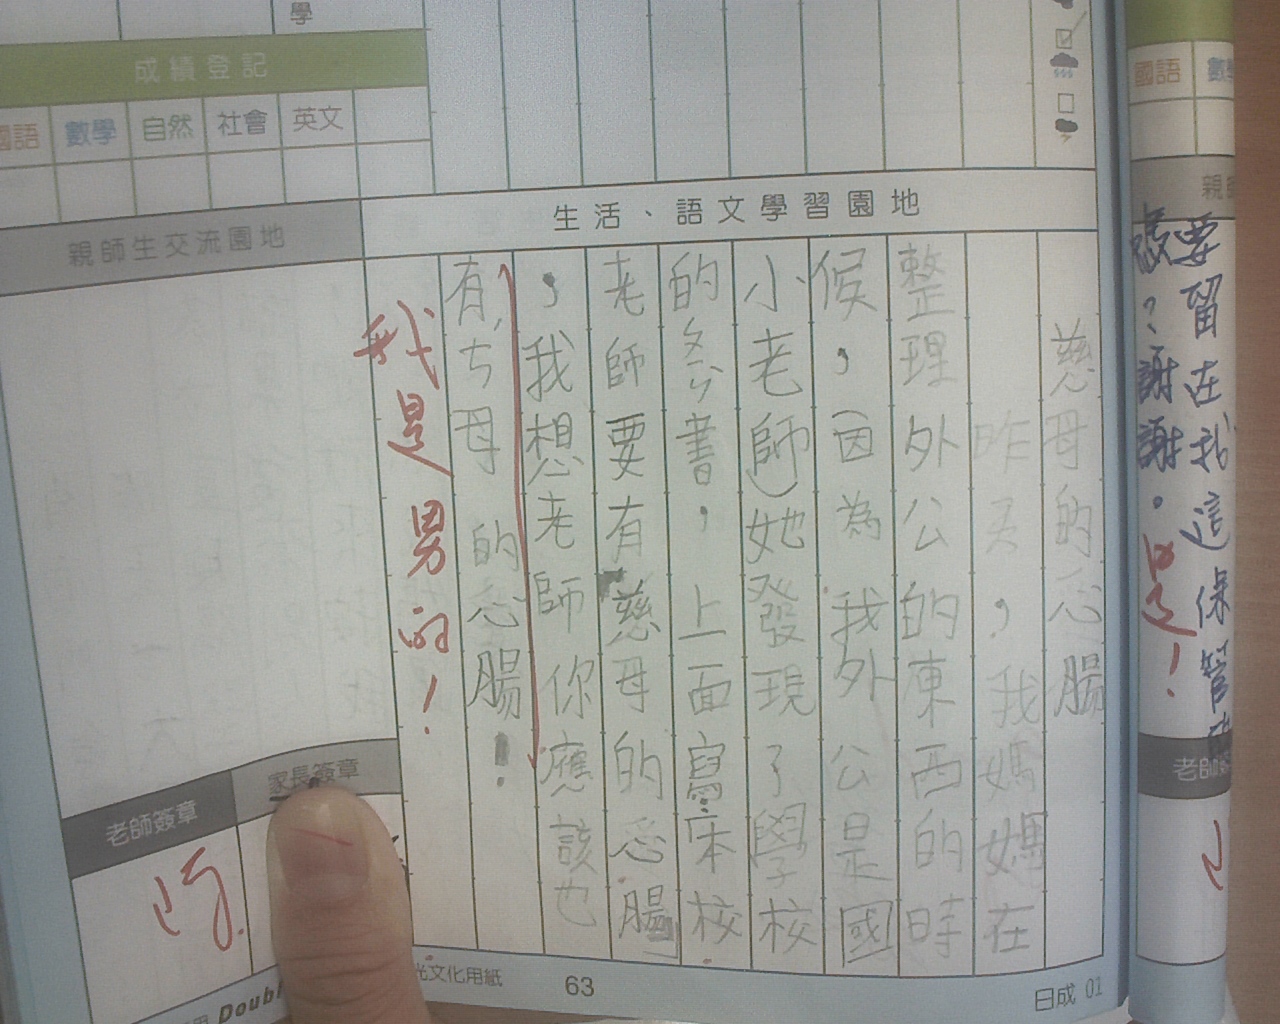 學
成績登記
國語 數學 自然 社會 英文
生活、語文學習園地
慈母的心腸
昨天，我媽媽在
整理外公的東西的時
候，因為我外公是國
小老師她發現了學校
的ㄆㄣ書，上面寫本校
老師要有慈母的心腸
，我想老師你應該也
有ㄘ母的心腸！
我是男的！
親師生交流園地
老師簽章
家長簽章
光文化用紙
63
日成 01
Doubl
國語 數學
要留在我這保管
？謝謝。是！
老師簽